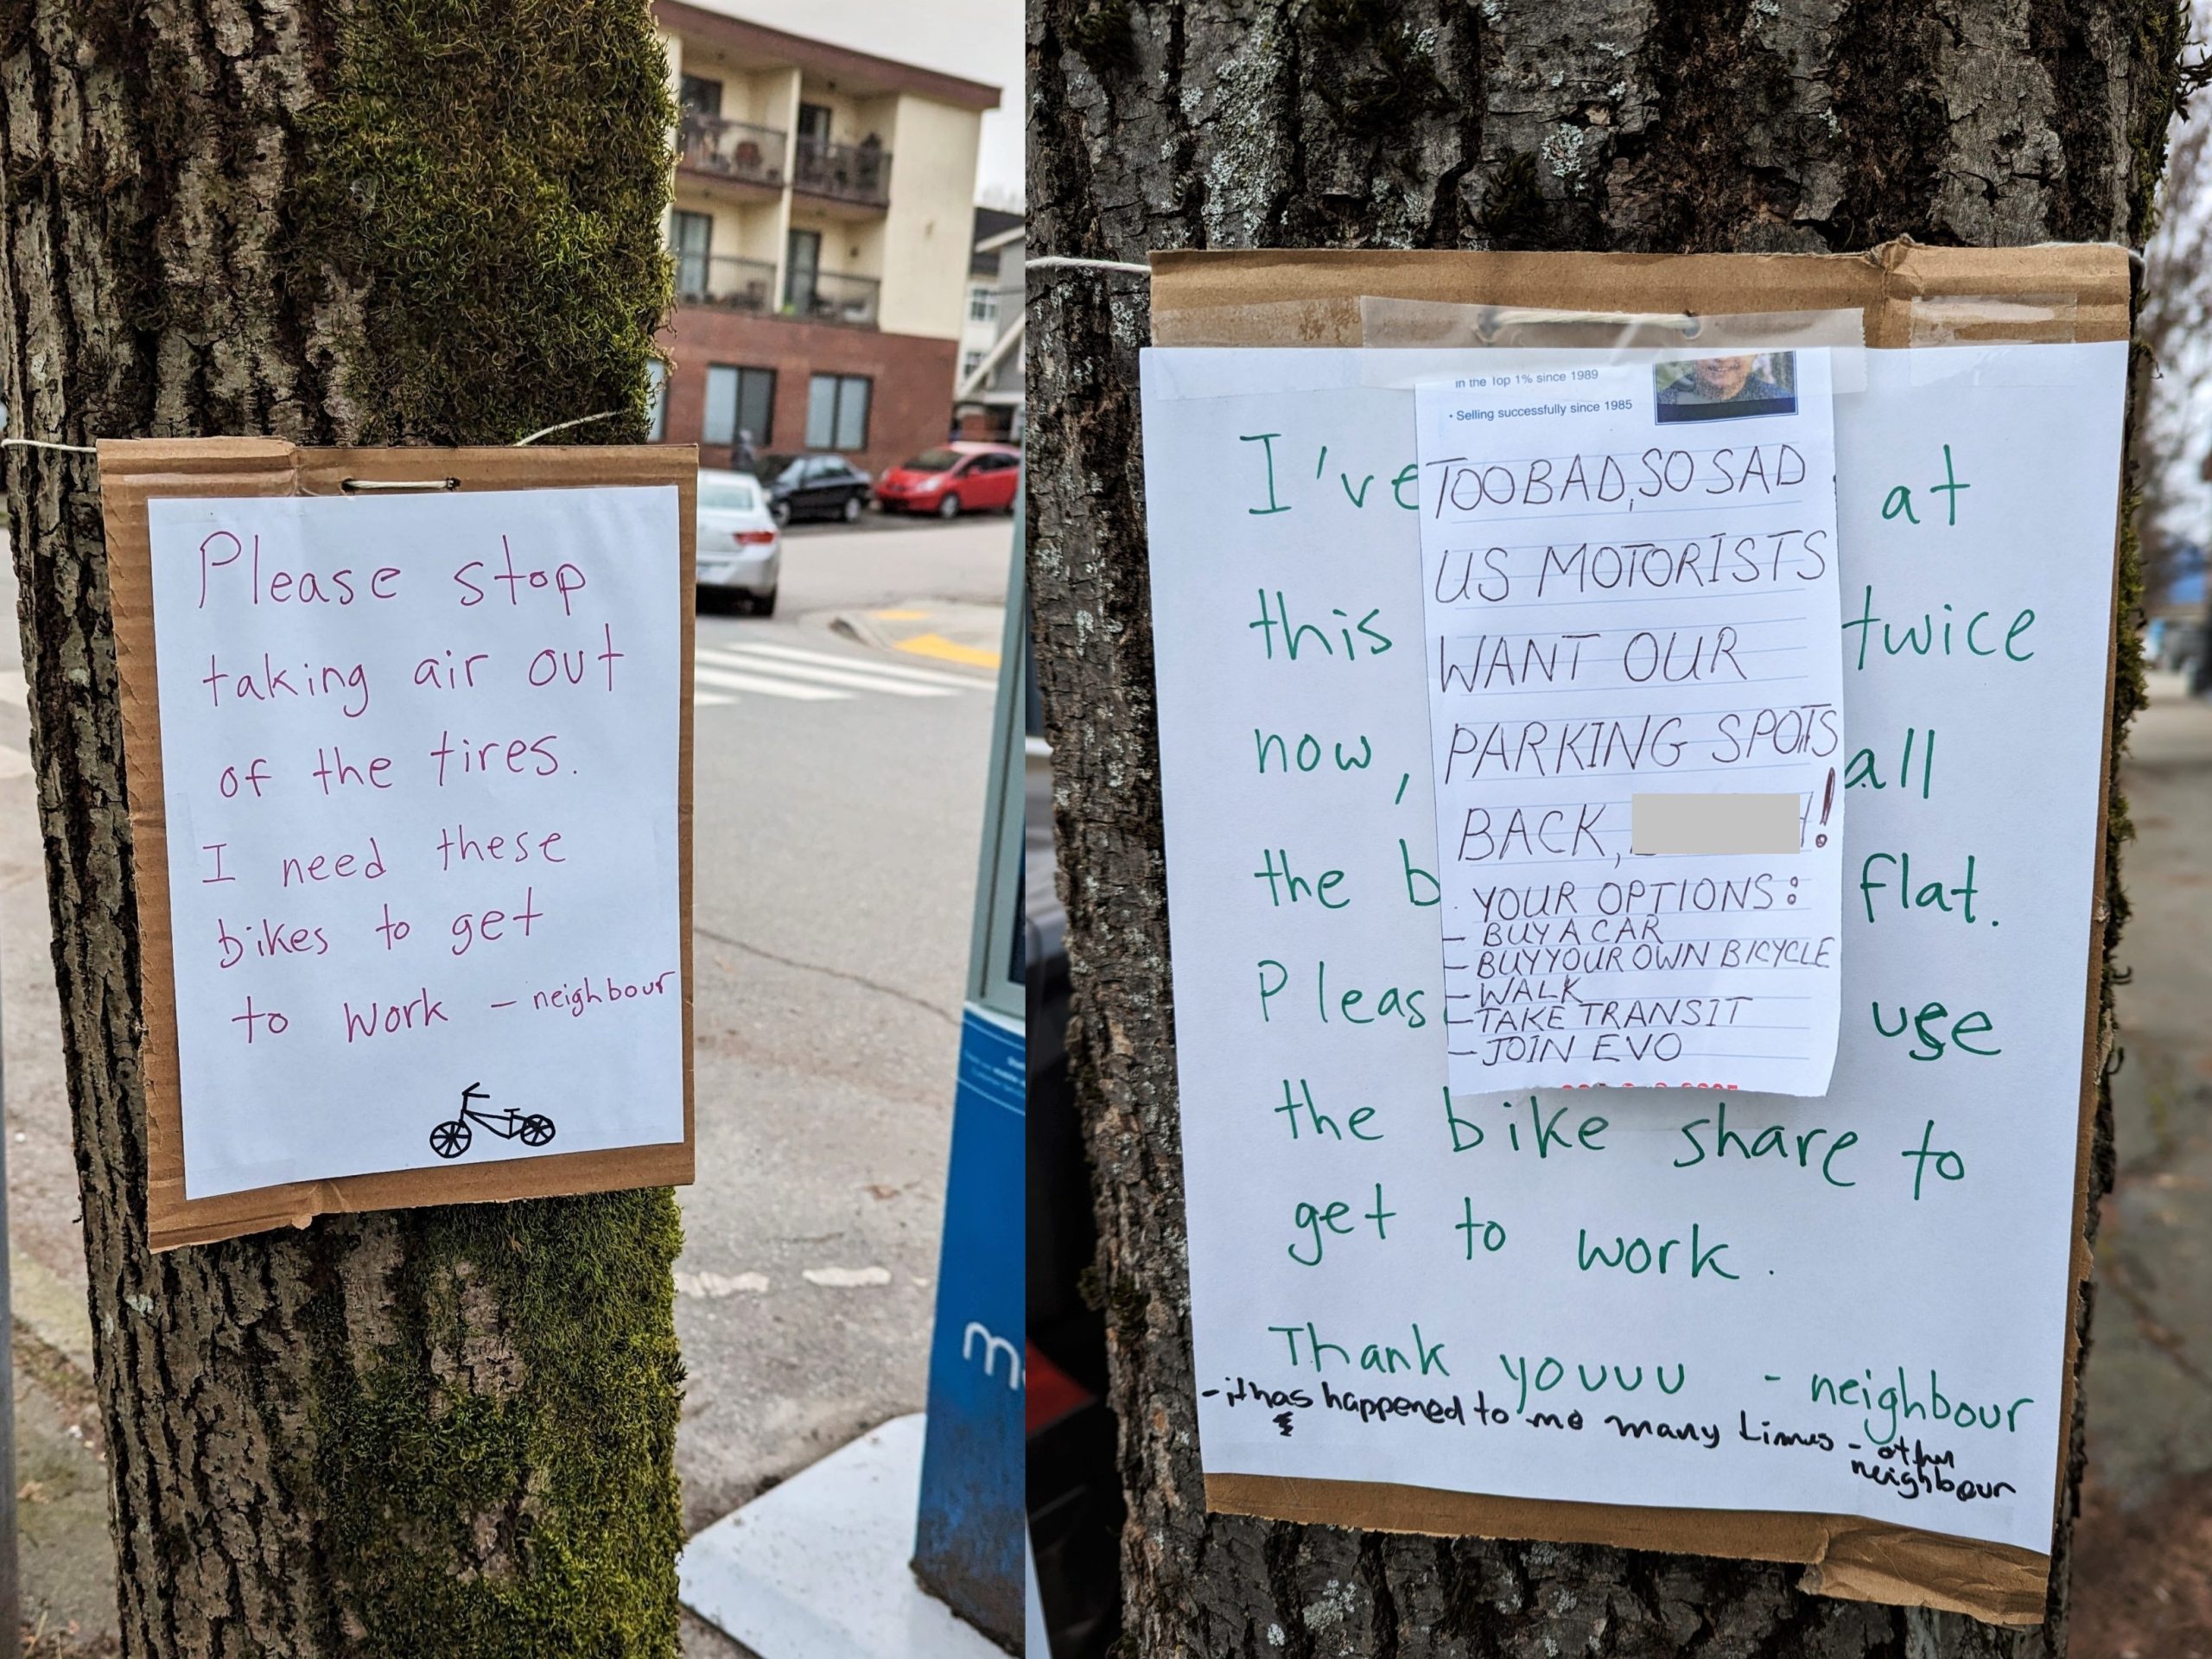 Please stop
taking air out
of the tires.
I need these
bikes to get
to work - neighbour
m
in the Top 1% since 1989
• Selling successfully since 1985
TOO BAD, SO SAD
US MOTORISTS
WANT OUR
PARKING SPOTS
BACK, !
YOUR OPTIONS:
- BUY A CAR
- BUY YOUR OWN BICYCLE
- WALK
- TAKE TRANSIT
- JOIN EVO
I've at
this twice
now, all
the b flat.
Pleas use
the bike share to
get to work.
Thank youuu - neighbour
- it has happened to me many times - other
neighbour